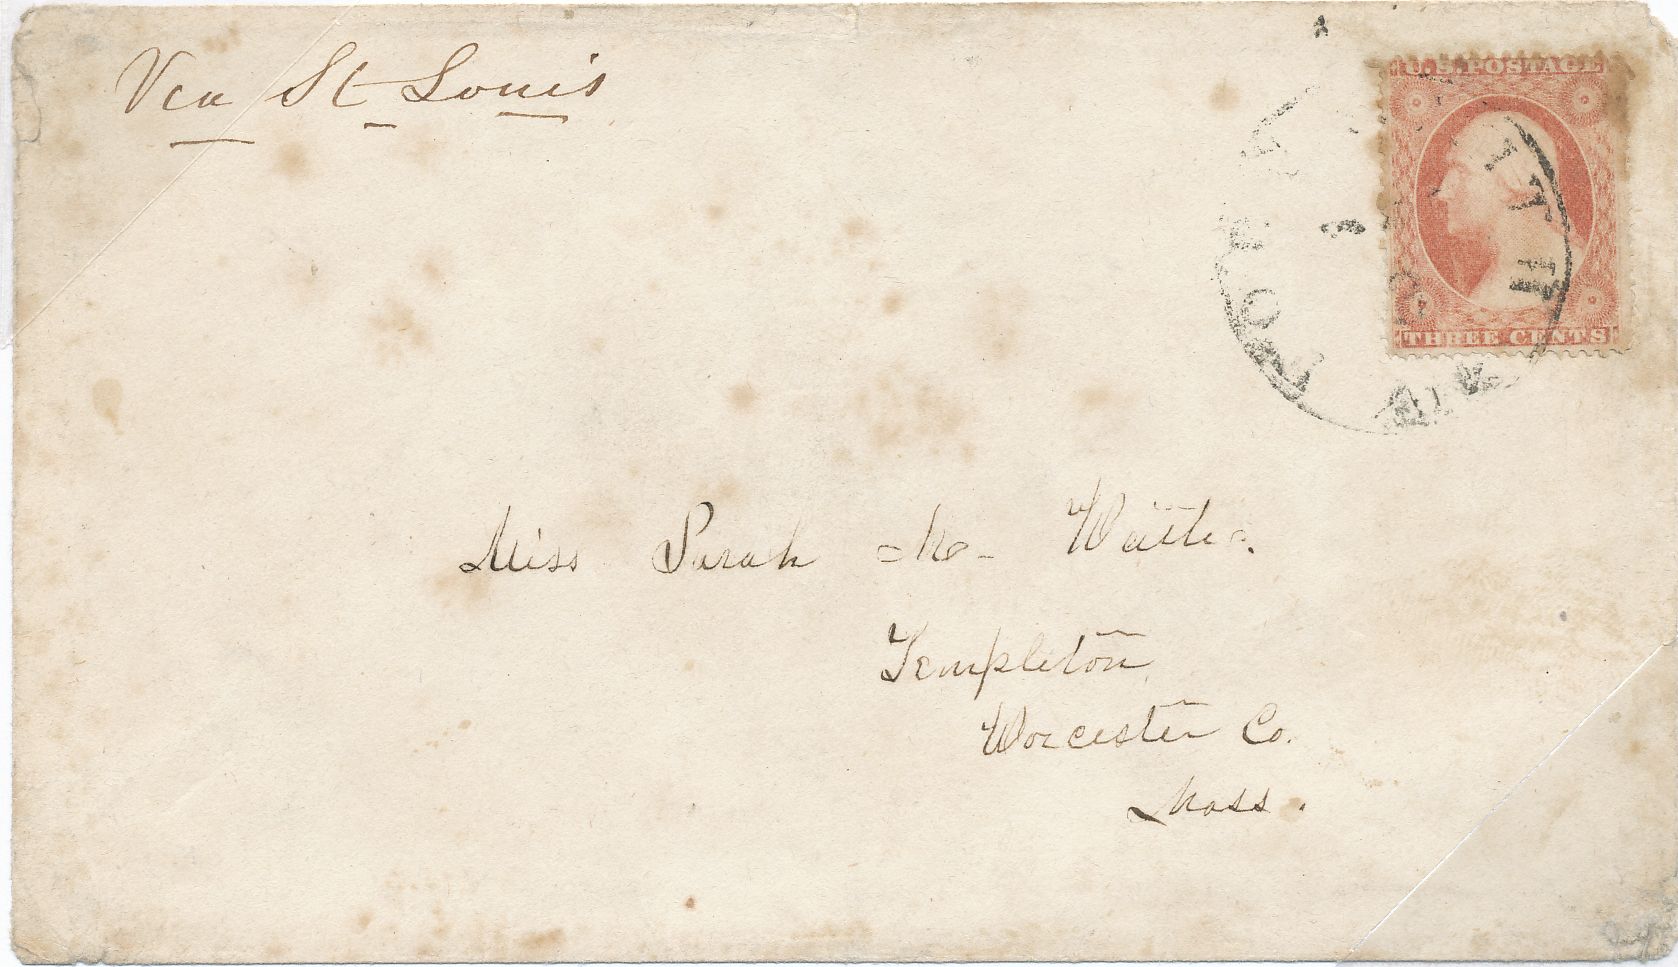 Via St Louis
U.S. POSTAGE
THREE CENTS
Miss Sarah M. Waite.
Templeton
Worcester Co.
Mass.